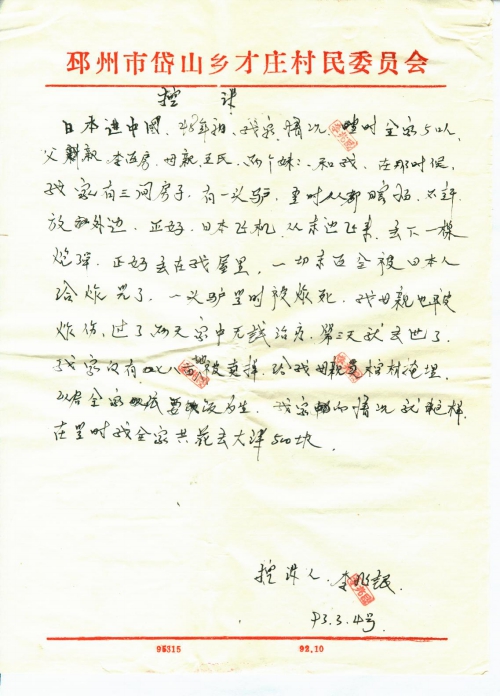 邳州市岱山乡才庄村民委员会
控 诉
日本进中國，48年初，我家情况，时全家5口人
父親 李 房，母親王氏，两个妹：和我，在那时候，
我家有三间房子，有一头驴，里时从 ，不许
放 外边，正好，日本飞机，从东边飞来，丢下一棵
炮弹，正好丢在我屋里，一切东西全被日本人
给炸光了，一头驴里时被炸死，我母親也被
炸伤，过了两天家中无钱治疗，第三天就去世了，
我家仅有 八亩地被卖掉 给我母親買棺材掩埋，
以后全家 要饭为生，我家 的情况就 样，
在里时我全家共花去大洋500块
控诉人：李
93.3.4号
95315 92.10